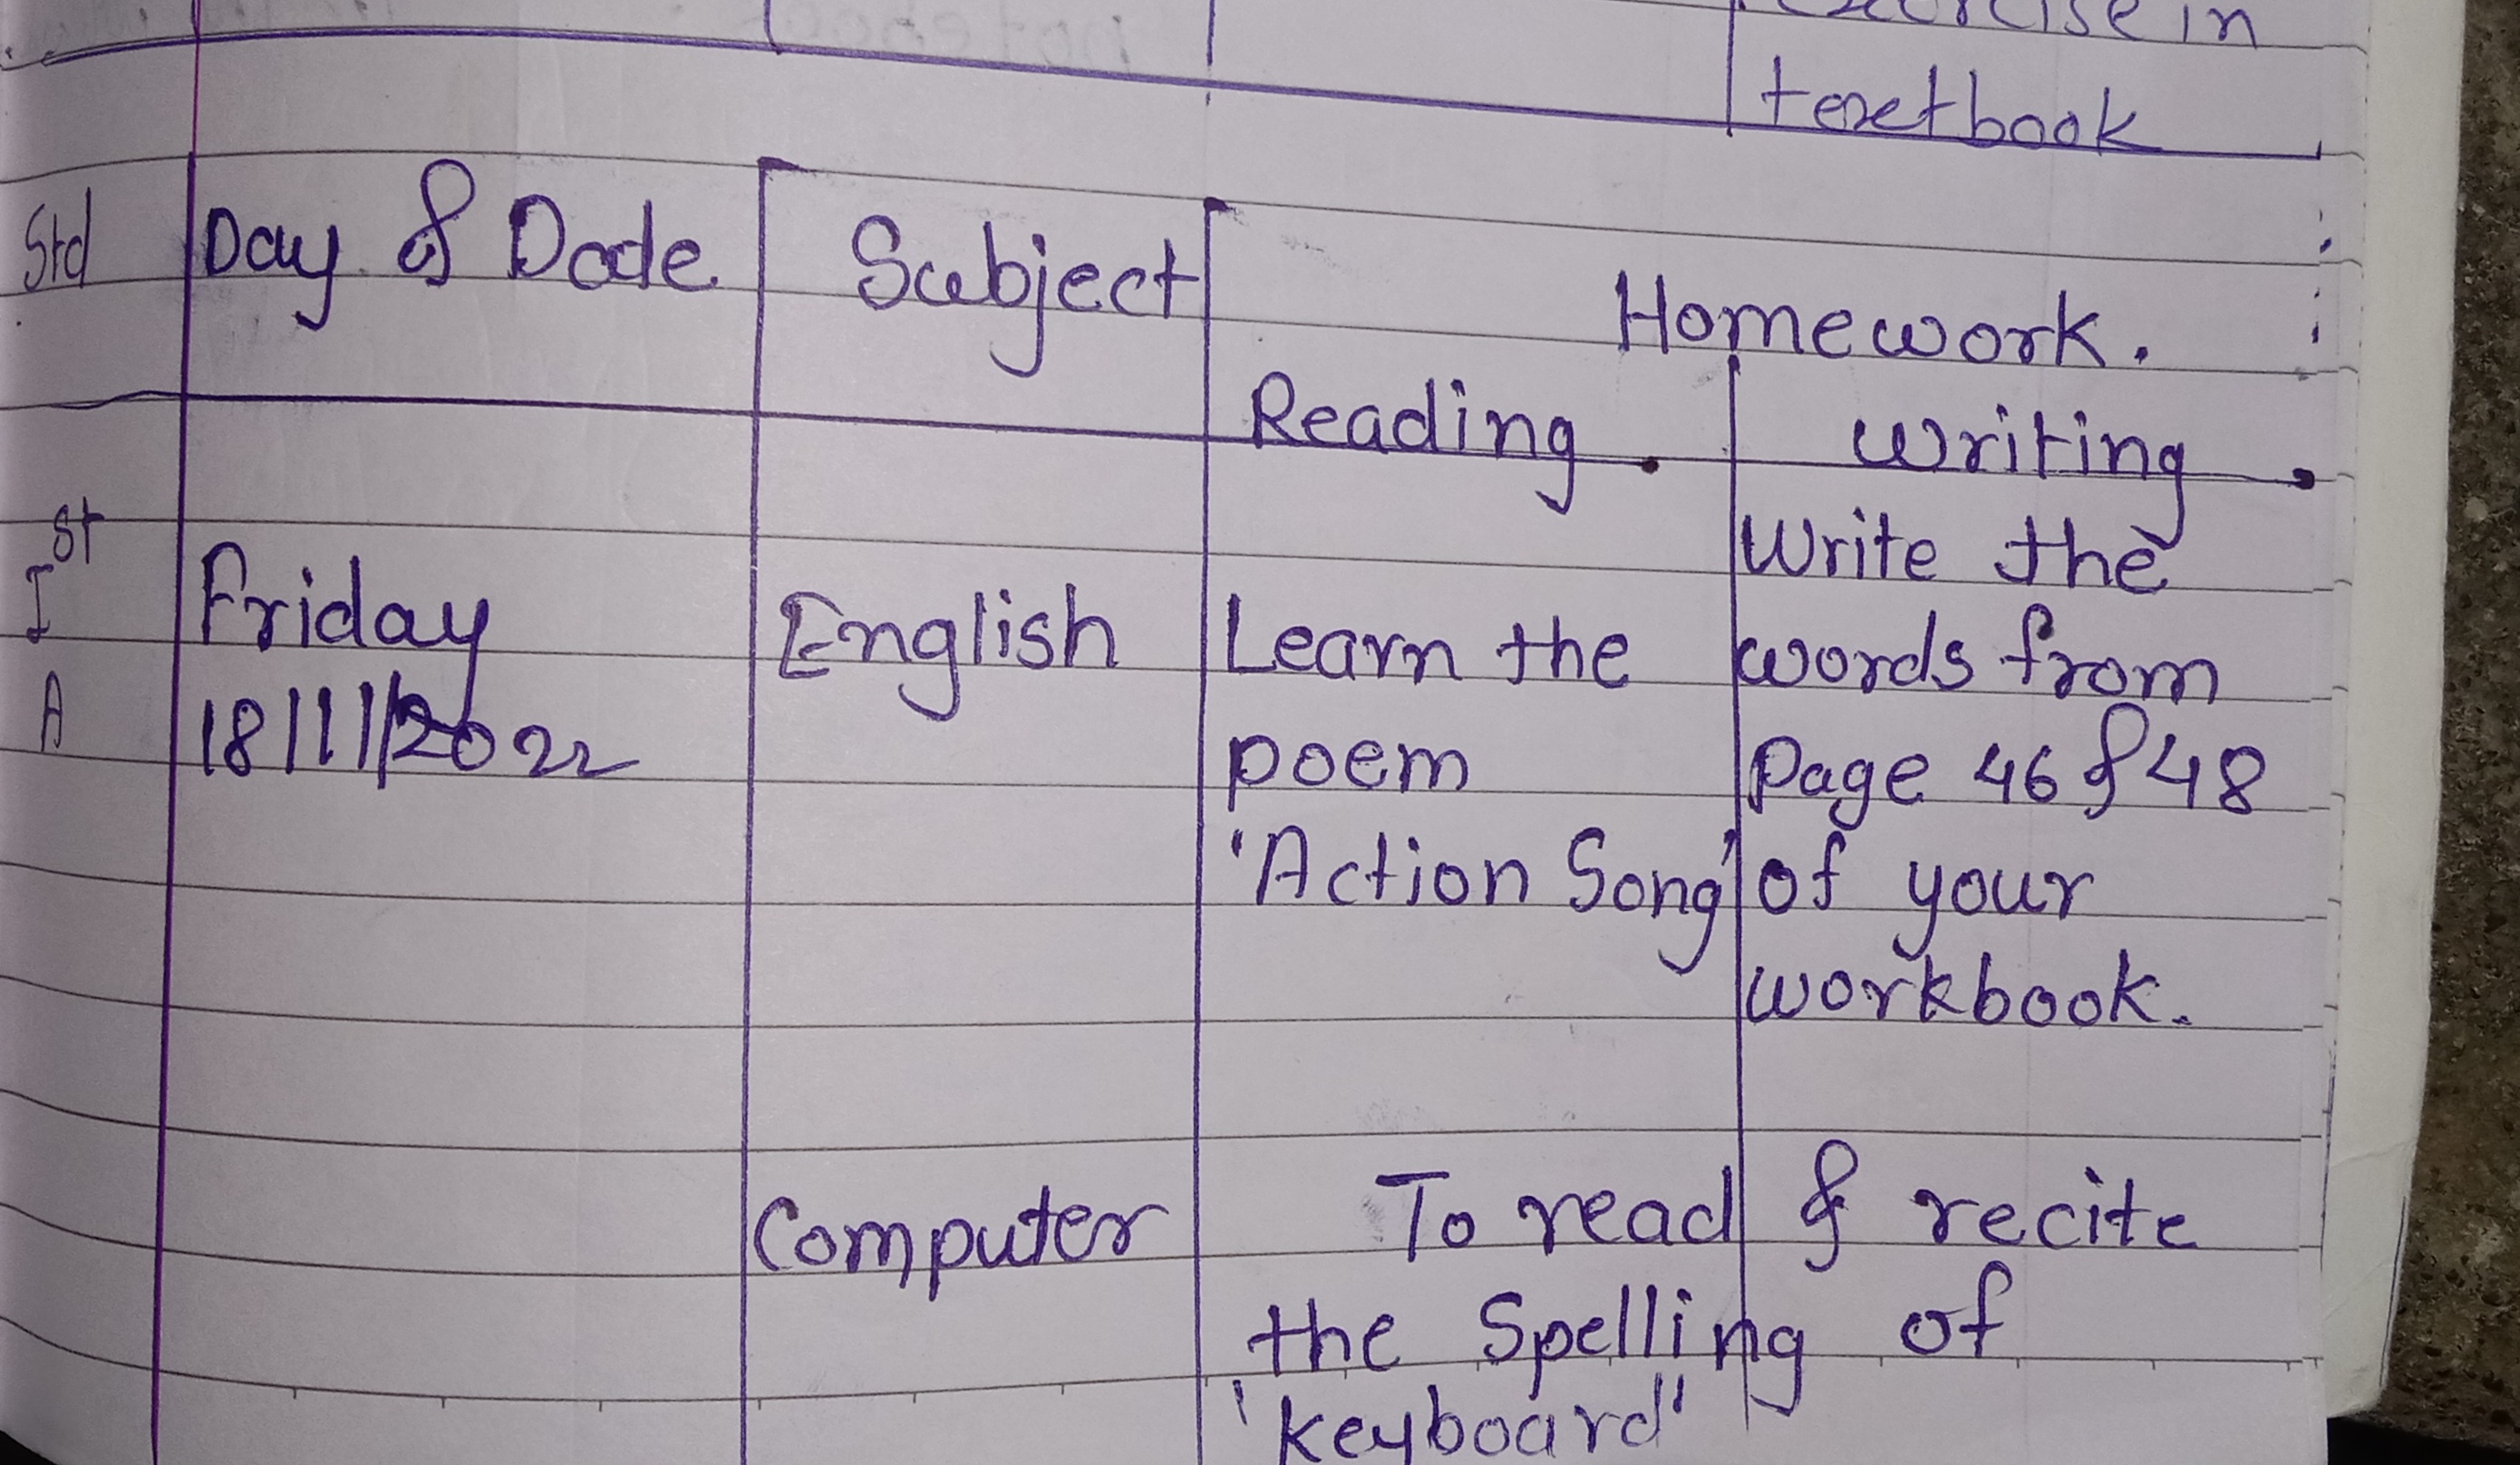 exercise in
textbook
Std Day & Date Subject Homework.
Reading. Writing.
Write the
Ist Friday English Learn the words from
A 18/11/2022 poem Page 46 & 48
'Action Song' of your
workbook.
Computer To read & recite
the Spelling of
'keyboard"